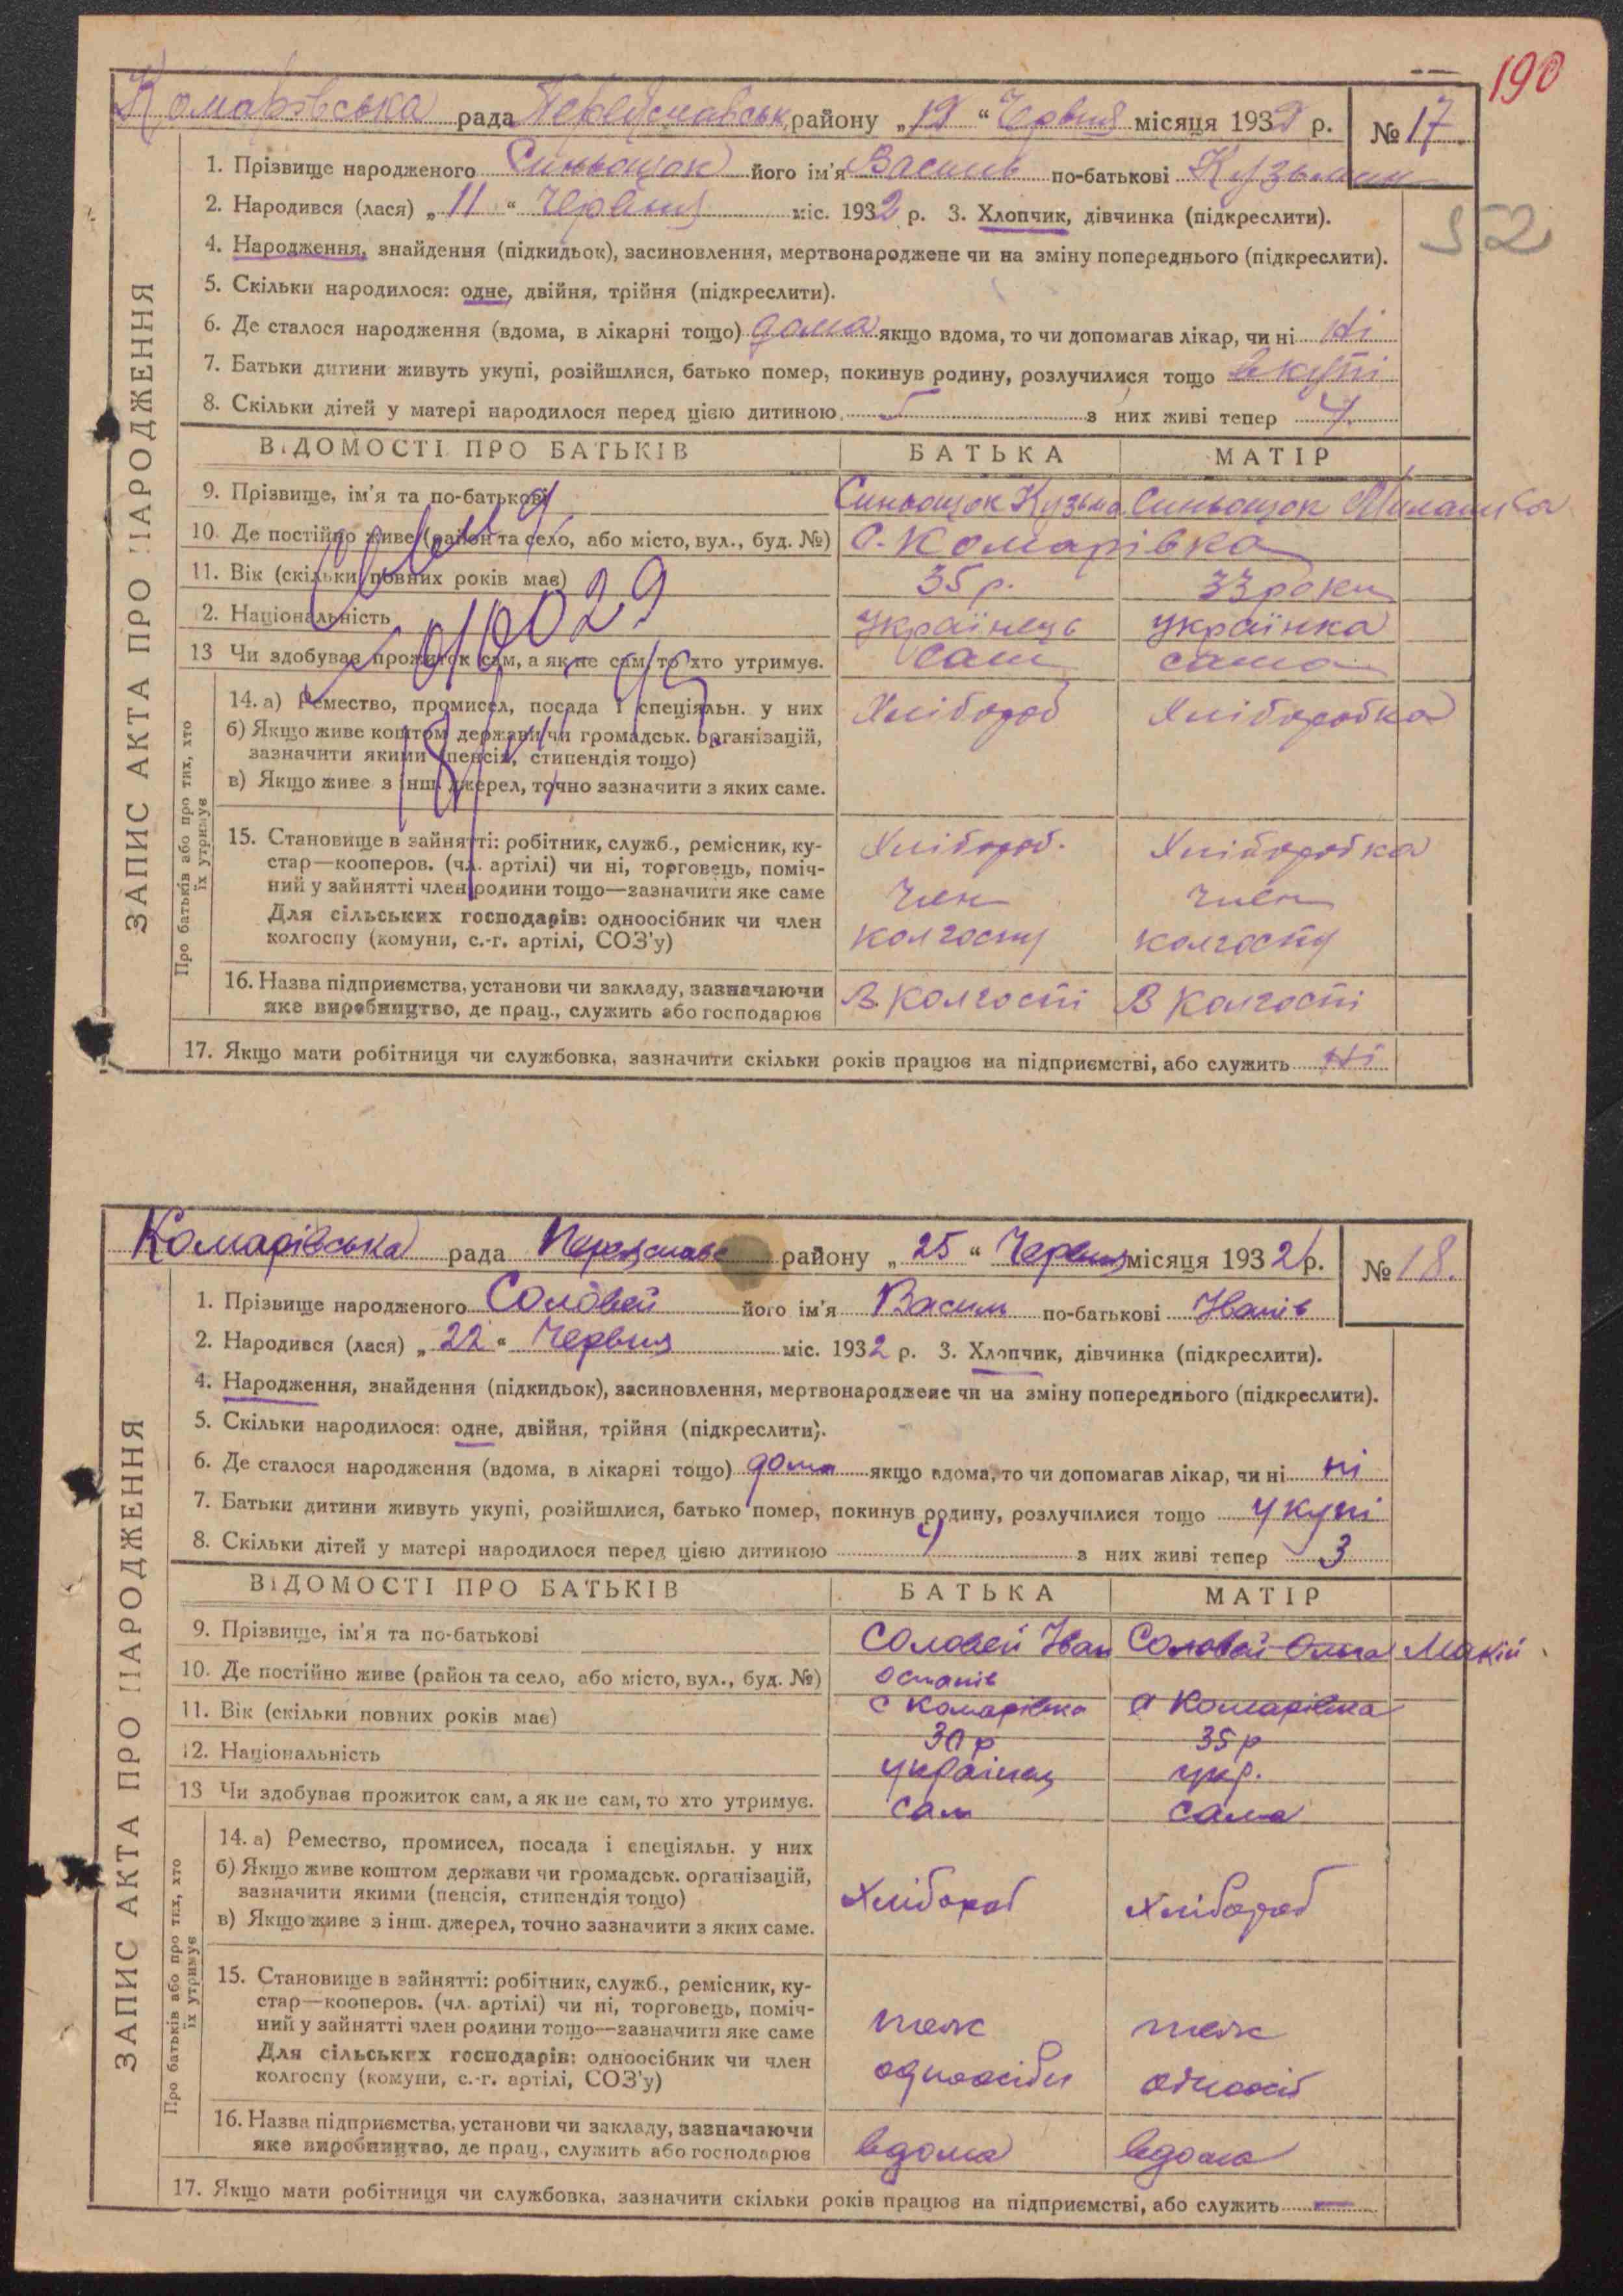 190
Комарівська рада Переяславськ. району „12“ Червня місяця 1932 р. № 17
1. Прізвище народженого Синьощок його ім'я Василь по-батькові Кузьмин
2. Народився (лася) „11“ Червня міс. 1932 р. 3. Хлопчик, дівчинка (підкреслити).
52
4. Народження, знайдення (підкидьок), засиновлення, мертвонароджене чи на зміну попереднього (підкреслити).
5. Скільки народилося: одне, двійня, трійня (підкреслити).
6. Де сталося народження (вдома, в лікарні тощо) дома якщо вдома, то чи допомагав лікар, чи ні ні
7. Батьки дитини живуть укупі, розійшлися, батько помер, покинув родину, розлучилися тощо вкупі
8. Скільки дітей у матері народилося перед цією дитиною 5 з них живі тепер 4
ЗАПИС АКТА ПРО НАРОДЖЕННЯ
ВІДОМОСТІ ПРО БАТЬКІВ БАТЬКА МАТІР
9. Прізвище, ім'я та по-батькові Синьощок Кузьма Синьощок
10. Де постійно живе (район та село, або місто, вул., буд. №) с. Комарівка
11. Вік (скільки повних років має) 35 р. 33 роки
2. Національність українець українка
13 Чи здобуває прожиток сам, а як не сам, то хто утримує. сам сама
Про батьків або про тих, хто їх утримує
14. а) Ремество, промисел, посада і спеціяльн. у них Хлібороб Хліборобка
б) Якщо живе коштом держави чи громадськ. організацій,
зазначити якими (пенсія, стипендія тощо)
в) Якщо живе з інш. джерел, точно зазначити з яких саме.
15. Становище в зайнятті: робітник, служб., ремісник, ку- Хлібороб. Хліборобка
стар—кооперов. (чл. артілі) чи ні, торговець, поміч-
ний у зайнятті член родини тощо—зазначити яке саме член член
Для сільських господарів: одноосібник чи член
колгоспу (комуни, с.-г. артілі, СОЗ'у) колгоспу колгоспу
16. Назва підприємства, установи чи закладу, зазначаючи В колгоспі В колгоспі
яке виробництво, де прац., служить або господарює
17. Якщо мати робітниця чи службовка, зазначити скільки років працює на підприємстві, або служить ні
Комарівська рада Переяславс району „25“ Червня місяця 1932 р. № 18.
1. Прізвище народженого Соловей його ім'я Васил по-батькові Іванів
2. Народився (лася) „22“ Червня міс. 1932 р. 3. Хлопчик, дівчинка (підкреслити).
4. Народження, знайдення (підкидьок), засиновлення, мертвонароджене чи на зміну попереднього (підкреслити).
5. Скільки народилося: одне, двійня, трійня (підкреслити).
6. Де сталося народження (вдома, в лікарні тощо) дома якщо вдома, то чи допомагав лікар, чи ні ні
7. Батьки дитини живуть укупі, розійшлися, батько помер, покинув родину, розлучилися тощо укупі
8. Скільки дітей у матері народилося перед цією дитиною 4 з них живі тепер 3
ЗАПИС АКТА ПРО НАРОДЖЕННЯ
ВІДОМОСТІ ПРО БАТЬКІВ БАТЬКА МАТІР
9. Прізвище, ім'я та по-батькові Соловей Іван Соловей Ольга
10. Де постійно живе (район та село, або місто, вул., буд. №) остапів
с Комарівка с Комарівка
11. Вік (скільки повних років має) 30 р 35 р
12. Національність українец укр.
13 Чи здобуває прожиток сам, а як не сам, то хто утримує. сам сама
Про батьків або про тих, хто їх утримує
14. а) Ремество, промисел, посада і спеціяльн. у них
б) Якщо живе коштом держави чи громадськ. організацій,
зазначити якими (пенсія, стипендія тощо) Хлібороб Хлібороб
в) Якщо живе з інш. джерел, точно зазначити з яких саме.
15. Становище в зайнятті: робітник, служб., ремісник, ку-
стар—кооперов. (чл. артілі) чи ні, торговець, поміч-
ний у зайнятті член родини тощо—зазначити яке саме теж теж
Для сільських господарів: одноосібник чи член
колгоспу (комуни, с.-г. артілі, СОЗ'у) одноосібн одноосіб
16. Назва підприємства, установи чи закладу, зазначаючи
яке виробництво, де прац., служить або господарює вдома вдома
17. Якщо мати робітниця чи службовка, зазначити скільки років працює на підприємстві, або служить —